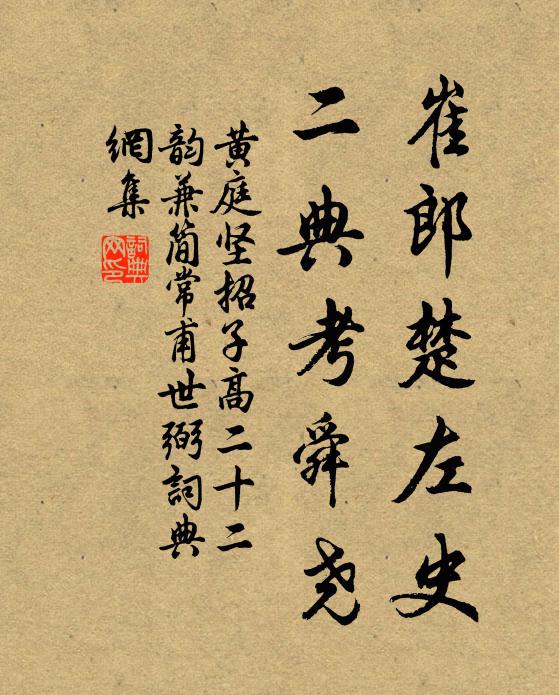 崔郎楚左史
二典考舜尧
黄庭坚招子高二十二
韵兼简常甫世弼詞典
網集
詞典網印